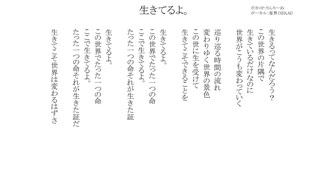 生きてるよ。
生きるってなんだろう?
この世界の片隅で
生きているだけなのに
世界がこうも変わっていく
巡り巡る時間の流れ
変わりゆく世界の景色
この世に生を受けて
生きてここでできることを
生きてるよ。
この世界でたった一つの命
ここで生きてるよ。
たった一つの命それが生きた証
生きてるよ。
この世界でたった一つの命
ここで生きてるよ。
たった一つの命それが生きた証だ
生きてこそ世界は変わるはずさ